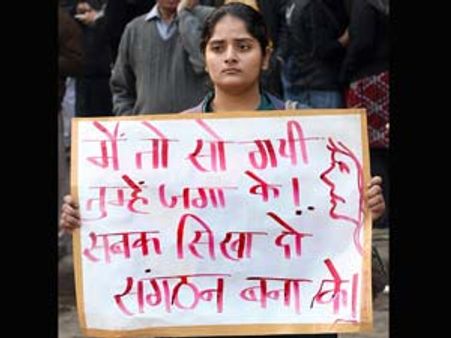 मैं तो सो गयी
तुम्हें जगा के!..
सबक सिखा दो
संगठन बना के।